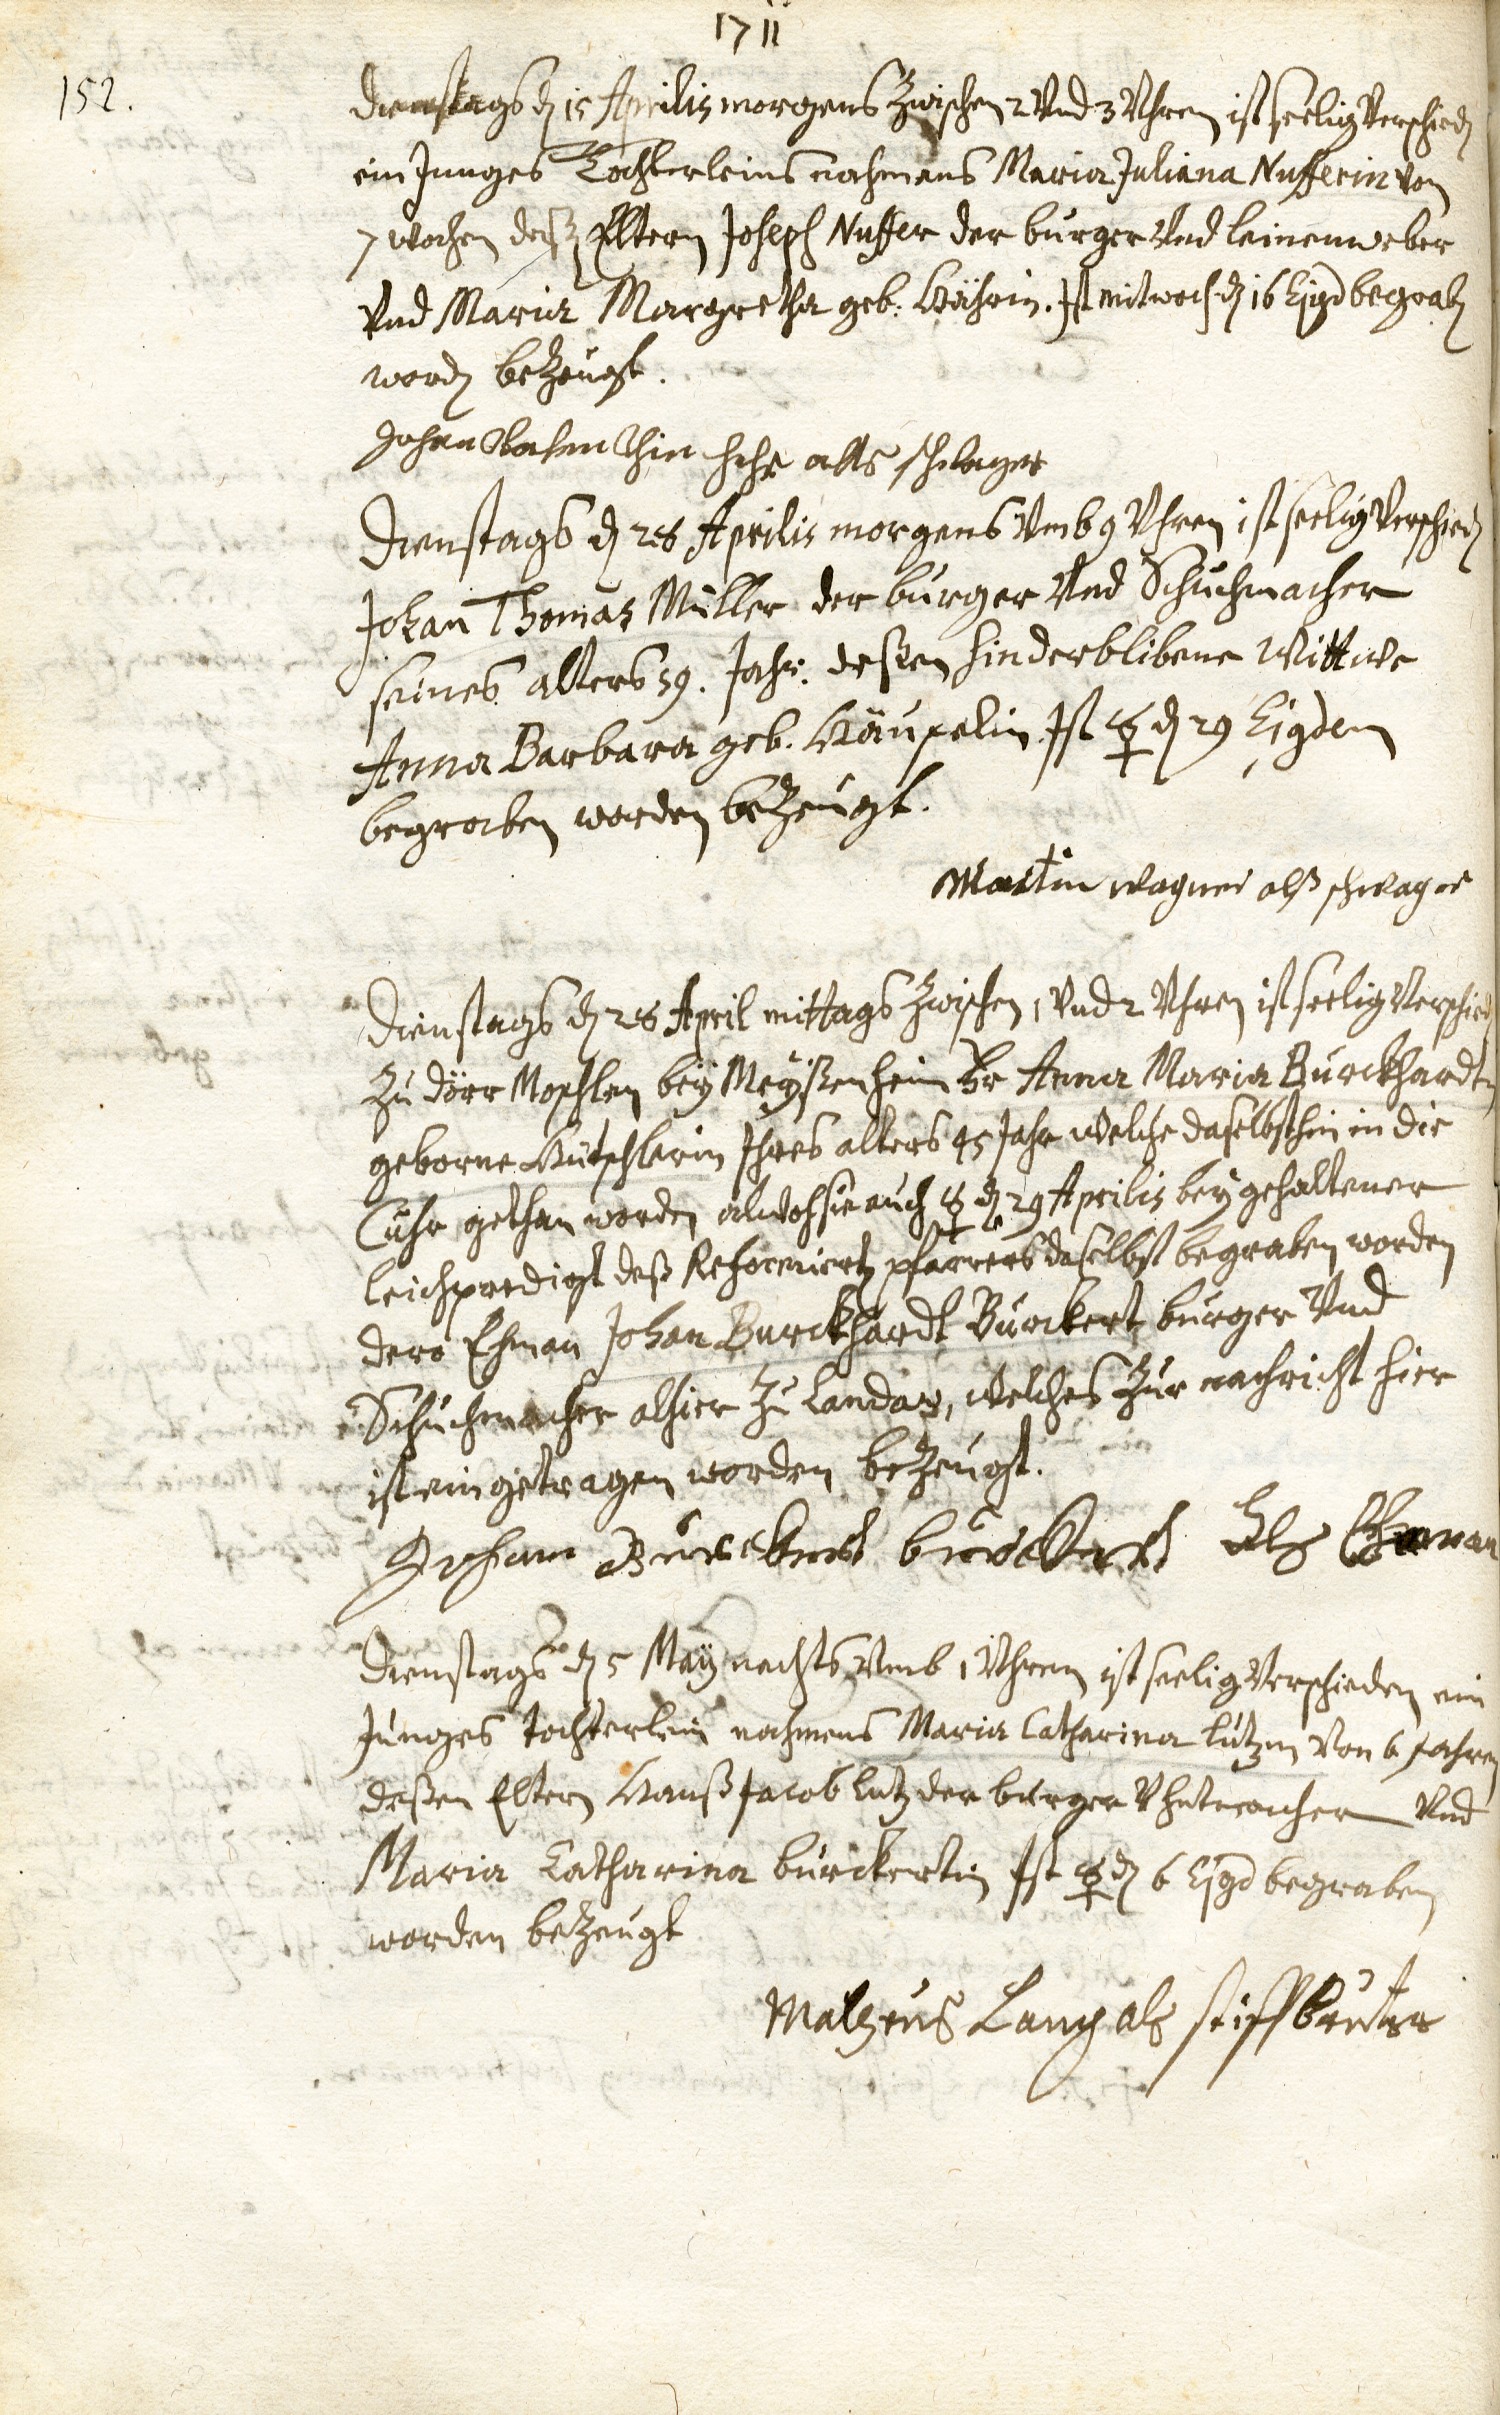 1711
152.
Dienstags dn 15 Aprilis morgens Zwischen 2 Vnd 3 Vhren ist seelig Verschiedn
ein Junges Tochterleins nahmens Maria Juliana Nufferin von
7 Wochen deßn Eltern Joseph Nuffer der burger Vnd leinenweber
Vnd Maria Margretha geb. Ist mitwoch dn 16 Ejgd begrabn
wordn beZeugt.
Johan als schwager
Dienstags dn 28 Aprilis morgens Vmb 9 Vhren ist seelig Verschiedn
Johan Thomas Müller der burger Vnd Schuchmacher
seines alters 59. Jahr. deßen hinderblibene Wittwe
Anna Barbara geb. Häußelin Ist ☿ dn 29 Ejgdem
begraben worden beZeugt.
Martin Wagner alß schwager
Dienstags dn 28 April mittags Zwischen 1 Vnd 2 Vhren ist seelig Verschiedn
Zu dörr Moschlen bey Meyßenheim Fr Anna Maria Burckhardtn
geborne Ihres alters 45 Jahr Welche daselbsthin in die
Cuhr gethan worden alwoh sie auch ☿ dn 29 Aprilis bey gehaltener
leichpredigt deß Reformirtn pfarrers daselbst begraben worden
dero Ehman Johan Burckhardt Burckert burger Vnd
Schuchmacher alhier Zu Landaw, Welches Zur nachricht hier
ist eingetragen worden beZeugt.
Johann Burckhart burckhart Als Ehman
Dienstags dn 5 May nachts Vmb 1 Vhren ist seelig Verschieden ein
Junges tochterlein nahmens Maria Catharina Lutzin Von 6 Jahren
deßen Eltern Hanß Jacob Lutz der burger V hutmacher Vnd
Maria Catharina burckertin Ist ☿ dn 6 Ejgd begraben
worden beZeugt
Matheus Lang als stiffbruter